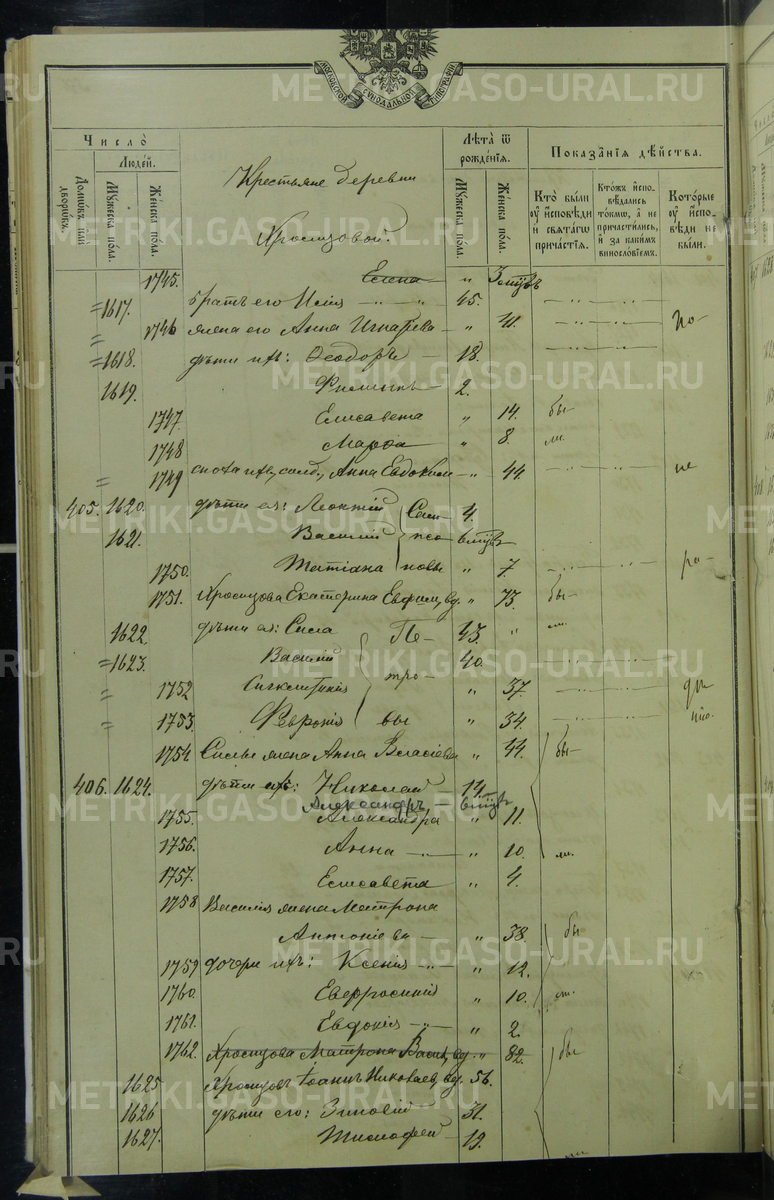 МОСКОВСКОЙ СѴНОДАЛЬНОЙ ТИПОГРАФІИ
Число̀
Людей.
Домѡвъ или дворѡвъ.
Мꙋжеска пола.
Женска пола.
Крестьяне деревни
Хромцовой.
Лѣта ѿ рожденїя.
Мꙋжеска пола.
Женска пола.
Показанїя дѣйства.
Кто были ꙋ исповѣди и святагѡ причастїя.
Ктожъ исповѣдались токмѡ, а не причастились, и за какимъ винословїемъ.
Которые ꙋ исповѣди не были.
1745. Елена " 3 мцв
=1617. братъ его Илія " 45.
= 1746 жена его Анна Игнатьева " 41. по-
=1618. дѣти ихъ: Ѳеодоръ 18.
1619. Филиппъ 2.
1747 Елисавета " 14. бы-
1748 Марѳа " 8. ли.
= 1749 Анна Евдоким. " 44. не
405. 1620. дѣти ея: Леонтій 4.
1621. Василій
1750. Татіана " 7. ра-
1751. Хромцова Екатерина Евфим. вд. " 73. бы-
1622. дѣти ея: Сила Пе- 43. " ли.
=1623. Василій тро- 40.
= 1752 Синклитикія " 37.
= 1753. Феѵронія вы " 34.
1754. Силы жена Анна Власіева " 44. бы-
406. 1624. дѣти ихъ: Николай 14.
Александръ
1755. Александра " 11.
1756. Анна " 10. ли.
1757. Елисавета " 4.
1758 Василія жена Матрона
Антоніева " 38. бы
1759 дочери ихъ: Ксенія " 12.
1760. Евфросинія " 10.
1761. Евдокія " 2.
1762. Хромцова Матрона Васил. вд. " 82. бы
1625 Хромцовъ Іоаннъ Николаев. вд. 56.
1626 дѣти его: Зиновій 31.
1627. Тимофей 19.
ли
METRIKI.GASO-URAL.RU